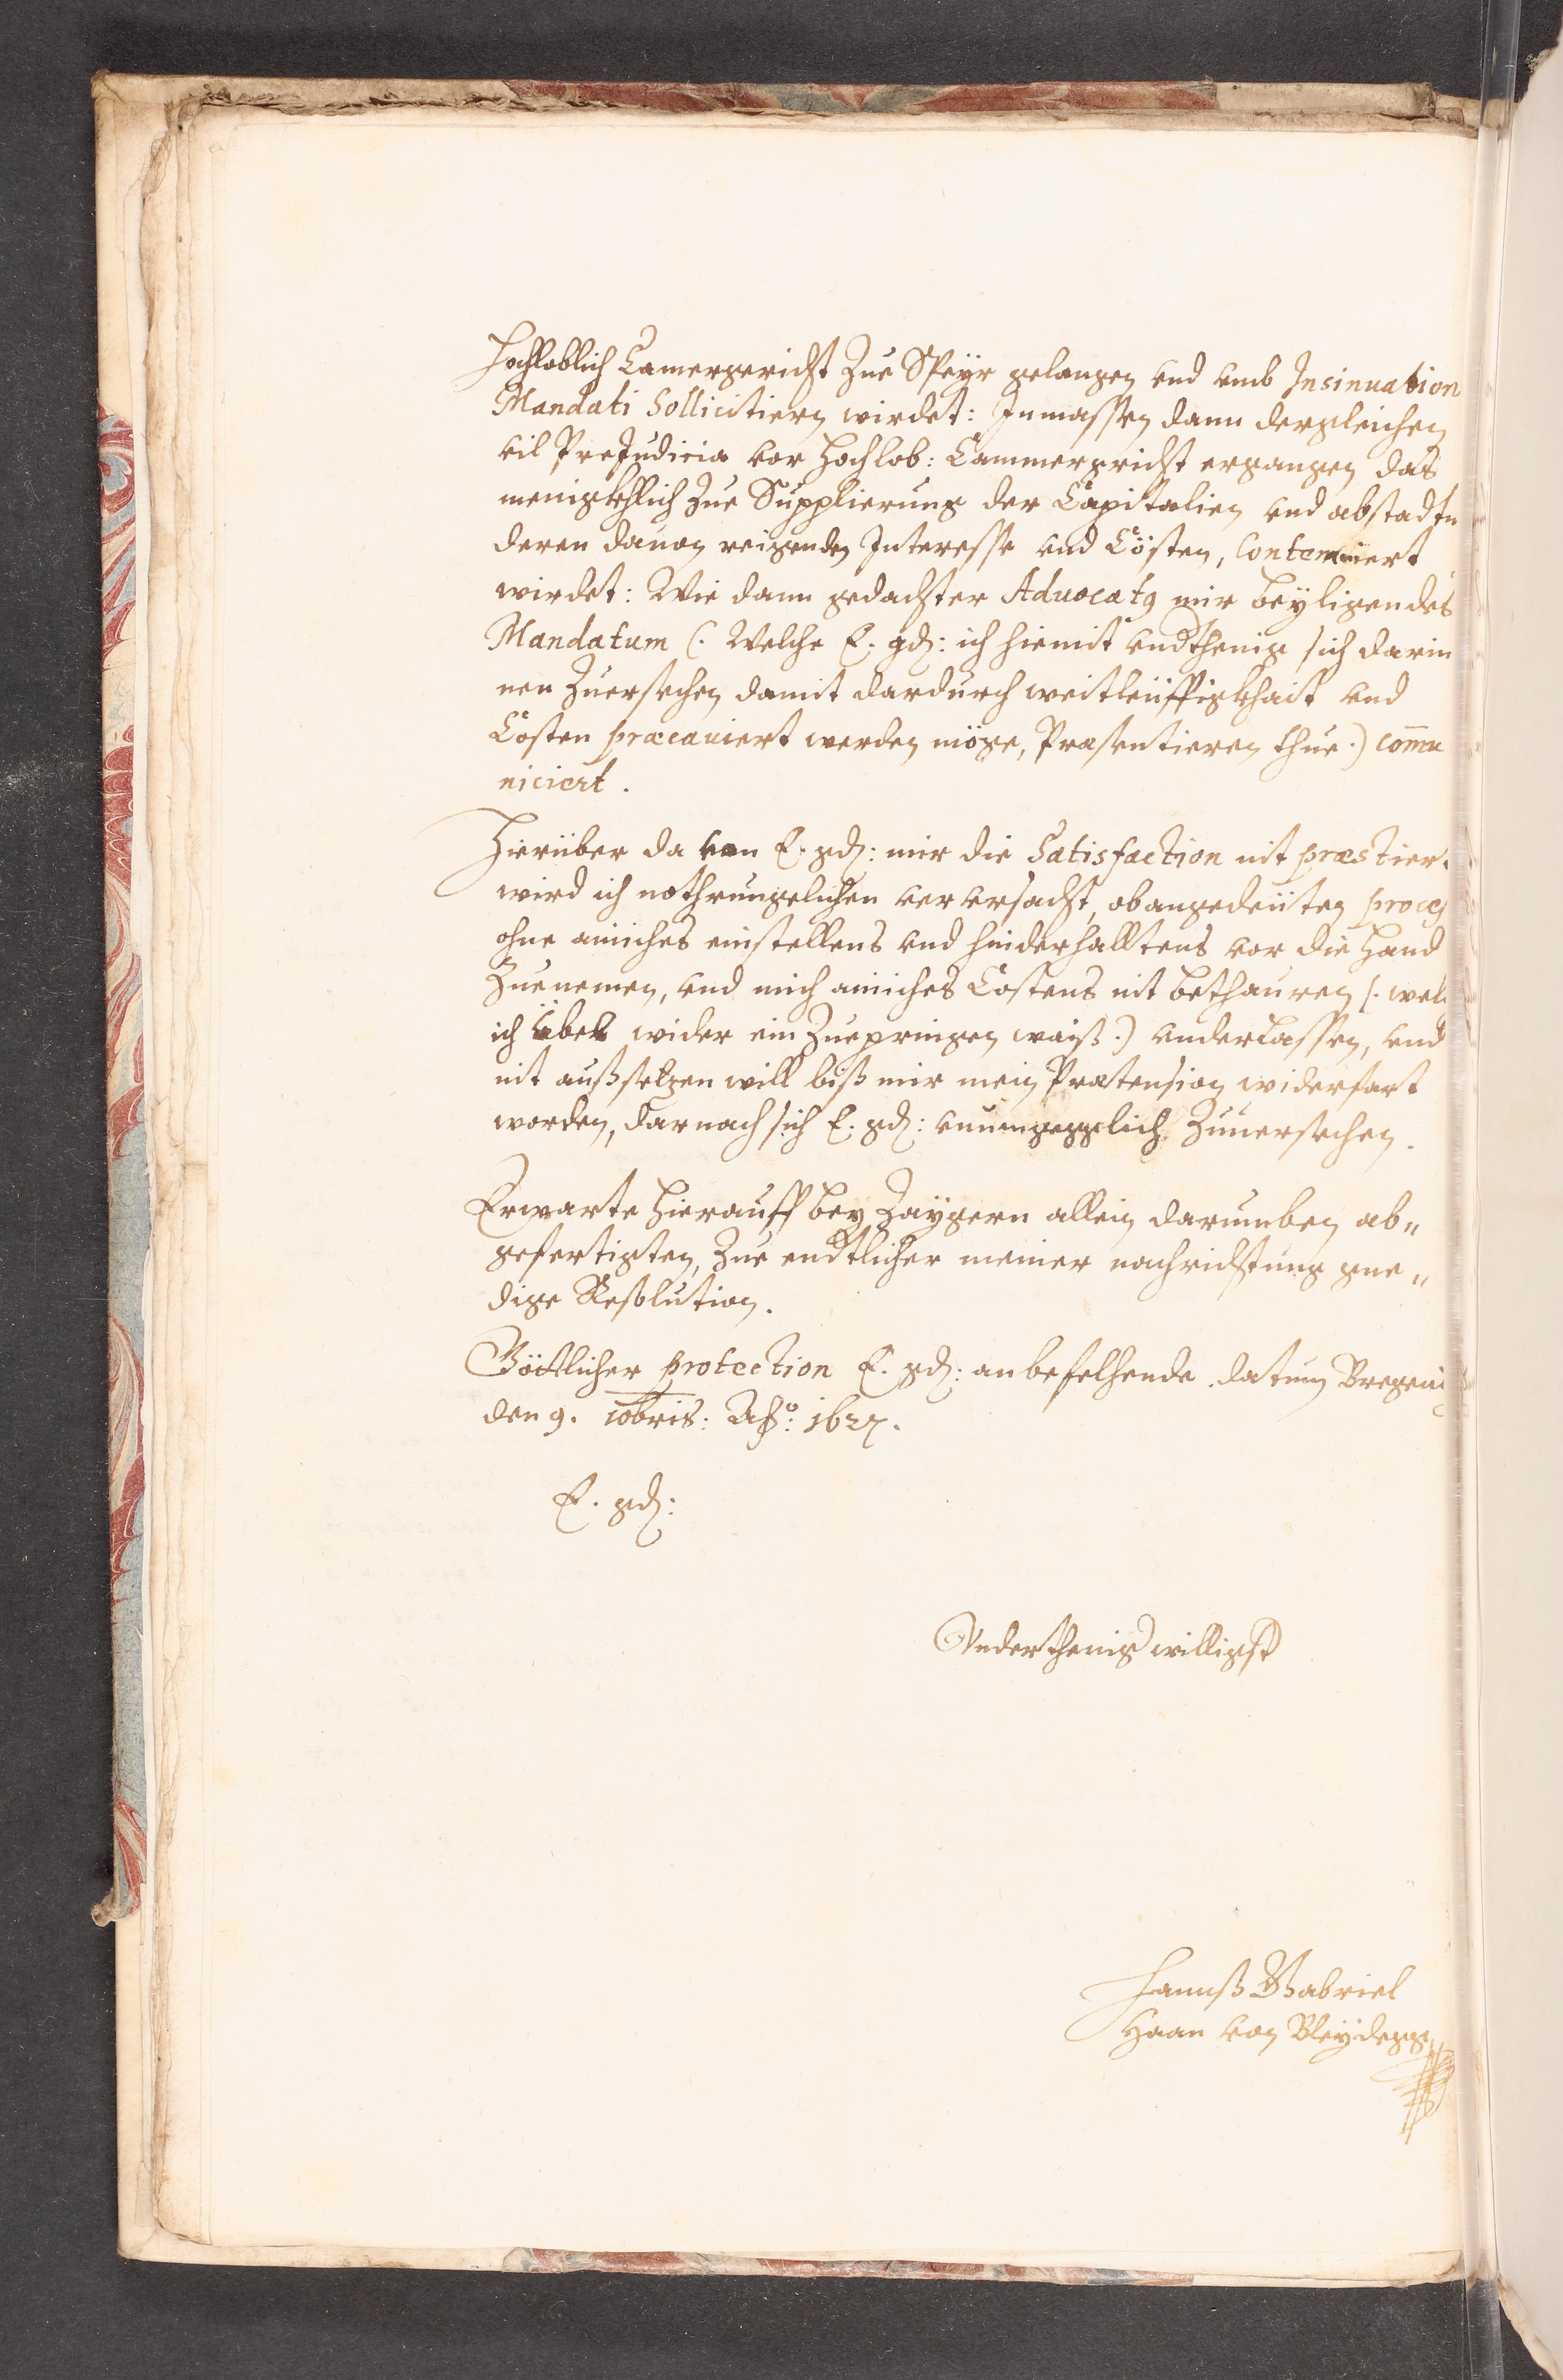 Hochloblich Camergericht Zue Speyr gelangen vnd vmb Insinuation
Mandati Sollicitiern wirdet: Inmassen dann dergleichen
vil PreJudicia vor Hochlob: Cammergricht ergangen, das
menigkhlich Zue Supplierung der Capitalien vnd abstadtn
deren dauon reigenden Interesse vnd Cösten, Contemniert
wirdet: Wie dann gedachter Aduocatg mir beyligendes
Mandatum (: Welche E. gd: ich hiemit vndthenig sich darin
nen Zuersechen damit dardurch weitleüffigkhait vnd
Cösten præcauiert werden möge, Præsentieren thue:) com̄u
niciert.
Hierüber da von E. gd: mir die Satisfaction nit præstier
wird ich nothrungelichen verursacht, obangedeüten proceß
ohne ainiches einstellens vnd hinderhalltens vor die Hand
Zuenemen, vnd mich ainiches Costens nit bethauren (: wel
ich übel wider ein Zuepringen waiß:) vnderlassen, vnd
nit außsetzen will biß mir mein Prætension widerfart
worden, Darnach sich E. gd: Zuuersechen.
Erwarte Hierauff bey Zaygern allein darumben ab„
gefertigten, Zue endtlicher meiner nachrichtung gne„
dige Resolution.
Göttlicher protection E. gd: anbefelhende. datum Bregen
den 9. 10bris: Aõ: 1627.
E. gd:
Vnderthenig willigst
Hannß Gabriel
Haan von Bleydegg